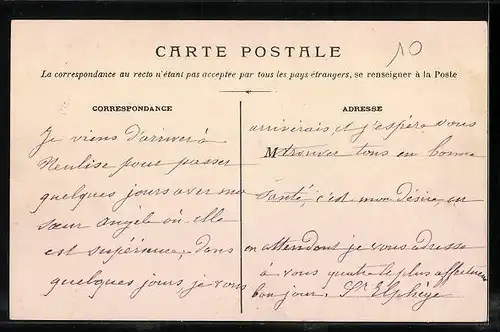 10
CARTE POSTALE
La correspondance au recto n'étant pas acceptée par tous les pays étrangers, se renseigner à la Poste
CORRESPONDANCE
Je viens d'arriver à
Neulise pour passer
quelques jours aver ma
sœur Angèle où elle
est supérieure, dans
quelques jours, je vous
ADRESSE
arriverais, et j'espère vous
M trouver tous en bonne
santé, c'est mon désire, en
en attendant je vous adresse
à vous quatre le plus affectueux
bonjour. Sr Elphège